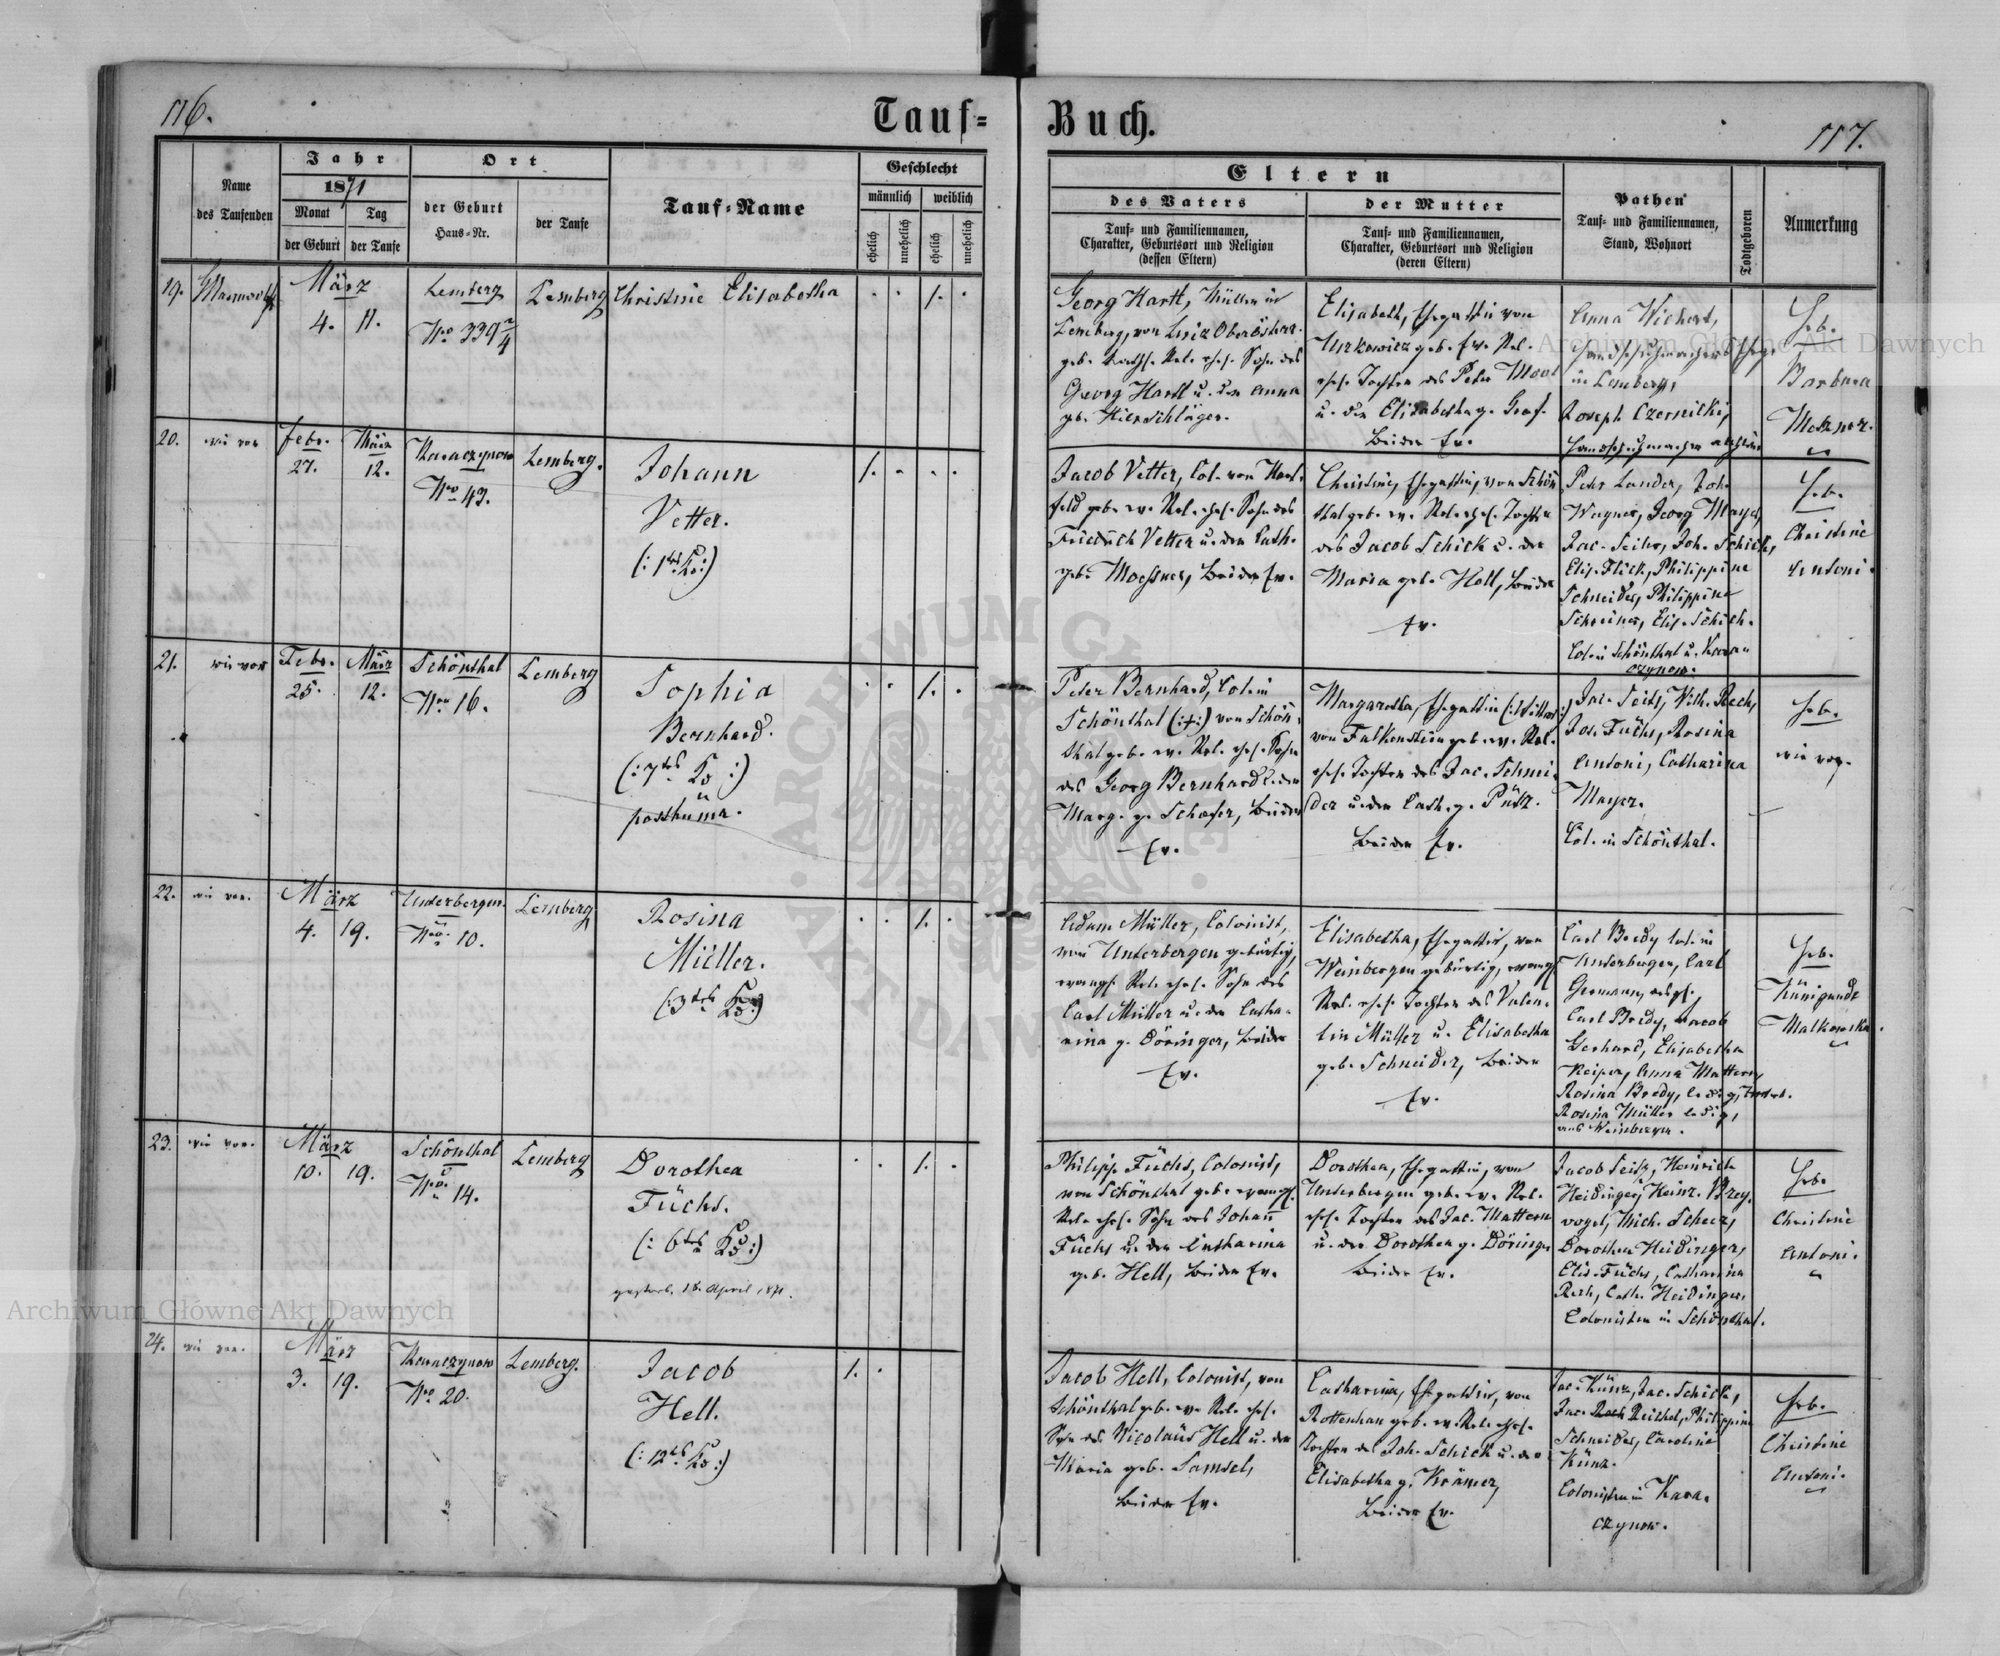 116.
Tauf=
Buch.
117.
Name
des Taufenden
Jahr
1871
Monat
der Geburt
Tag
der Taufe
Ort
der Geburt
Haus=Nr.
der Taufe
Tauf=Name
Geschlecht
männlich
weiblich
ehelich
unehelich
ehelich
unehelich
Eltern
des Vaters
Tauf= und Familiennamen,
Charakter, Geburtsort und Religion
(dessen Eltern)
der Mutter
Tauf= und Familiennamen,
Charakter, Geburtsort und Religion
(deren Eltern)
Pathen
Tauf= und Familiennamen,
Stand, Wohnort
Todtgeboren
Anmerkung
19.
März
4. 11.
Lemberg
Nro 339 4
Lemberg
Christine Elisabetha
Georg Hartl, Müller in
Lemberg, von Oberösterr.
geb. kath. Rel. ehel. Sohn des
Georg Hartl u. der Anna
geb. Hierschläger.
Elisabeth, Ehegattin von
geb. Ev. Rel.
ehel. Tochter des Peter
u. der Elisabetha g. Graf.
beide Ev.
Anna Wichert,
in Lemberg,
Joseph Czernicki,
Heb.
Barbara
20.
wie vor
Febr.
27.
März
12.
Karaczynow
Nro 43.
Lemberg.
Johann
Vetter.
(: 1tes Kd :)
Jacob Vetter, Col. von
feld geb. ev. Rel. ehel. Sohn des
Friedrich Vetter u. der Cath.
geb. Moessner, beide Ev.
Christine, Ehegattin, von Schön
thal geb. ev. Rel. ehel. Tochter
des Jacob Schick u. der
Maria geb. Hell, beide
Ev.
Peter Lander, Joh.
Wagner, Georg Mayer,
Jac. Seib, Joh. Schick,
Elis. Flick, Philippine
Schneider, Philippine
Schreiner, Elis. Schick.
Col. in Schönthal u. Kara-
czynow.
Heb.
Christine
Antoni.
21.
wie vor
Febr.
25.
März
12.
Schönthal
Nro 16.
Lemberg
Sophia
Bernhard.
(: 7tes Kd :)
posthuma.
Peter Bernhard, Col. in
Schönthal (:+:) von Schön-
thal geb. ev. Rel. ehel. Sohn
des Georg Bernhard u. der
Marg. g. Schaefer, beide
Ev.
Margaretha, Ehegattin (:Wittwe:)
von Falkenstein geb. ev. Rel.
ehel. Tochter des Jac. Schmi-
der u. der Cath. g. Pütz.
beide Ev.
Jac. Seib, Wilh. Rech,
Jos. Füchs, Rosina
Antoni, Catharina
Mayer.
Col. in Schönthal.
Heb.
wie vor.
22.
wie vor.
März
4. 19.
Unterbergen
Nro 10.
Lemberg
Rosina
Müller.
(: 3tes Kd :)
Adam Müller, Colonist,
von Unterbergen gebürtig,
evangl. Rel. ehel. Sohn des
Carl Müller u. der Catha-
rina g. Döringer, beide
Ev.
Elisabetha, Ehegattin, von
Weinbergen gebürtig, evangl.
Rel. ehel. Tochter des Valen-
tin Müller u. Elisabetha
geb. Schneider, beide
Ev.
Carl Bredy Col. in
Unterbergen, Carl
Germann,
Carl Bredy, Jacob
Gerhard, Elisabetha
Keiper, Anna Mattern,
Rosina Bredy, ledig,
Rosina Müller ledig,
aus Weinbergen.
Heb.
Künigunde
Malkowska.
23.
wie vor.
März
10. 19.
Schönthal
Nro 14.
Lemberg
Dorothea
Füchs.
(: 6tes Kd :)
gestorb. 18. April 1871.
Philipp Füchs, Colonist,
von Schönthal geb. evangl.
Rel. ehel. Sohn des Johann
Füchs u. der Catharina
geb. Hell, beide Ev.
Dorothea, Ehegattin, von
Unterbergen geb. ev. Rel.
ehel. Tochter des Jac. Mattern
u. der Dorothea g. Döringer
beide Ev.
Jacob Seib, Heinrich
Heidinger, Heinr. Brey-
vogel, Mich. Scherz,
Dorothea Heidinger,
Elis. Füchs, Catharina
Rech, Cath. Heidinger,
Colonisten in Schönthal.
Heb.
Christine
Antoni.
24.
wie vor.
März
3. 19.
Karaczynow
Nro 20.
Lemberg.
Jacob
Hell.
(: 12tes Kd :)
Jacob Hell, Colonist, von
Schönthal geb. ev. Rel. ehel.
Sohn des Nicolaus Hell u. der
Maria geb. Samsel,
beide Ev.
Catharina, Ehegattin, von
Rottenhan geb. ev. Rel. ehel.
Tochter des Joh. Schick u. der
Elisabetha g. Krämer,
beide Ev.
Jac. Künz, Jac. Schick,
Jac. Reichel, Philippine
Schneider, Caroline
Künz.
Colonisten in Kara-
czynow.
Heb.
Christine
Antoni.
Archiwum Główne Akt Dawnych
Archiwum Główne Akt Dawnych